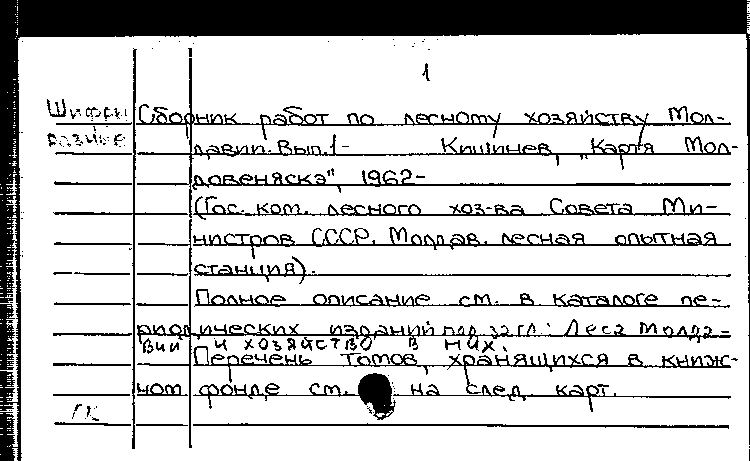 1
Шифры Сборник работ по лесному хозяйству Мол-
разные давии. Вып. 1- Кишинев, „Картя Мол-
довеняскэ", 1962-
(Гос. ком. лесного хоз-ва Совета Ми-
нистров СССР. Молдав. лесная опытная
станция).
Полное описание см. в каталоге пе-
риодических изданий под загл: Леса Молда-
вии и хозяйство в них.
Перечень томов, хранящихся в книж-
ном фонде см. на след. карт.
ГК